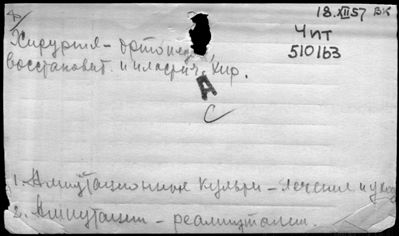 18.XII57 ВК
Чит
510163
Хирургия - ортопед.
восстановит. и пластич. хир.
А
С
1. Ампутационные культи - лечение и уход
2. Ампутации - реампутации.